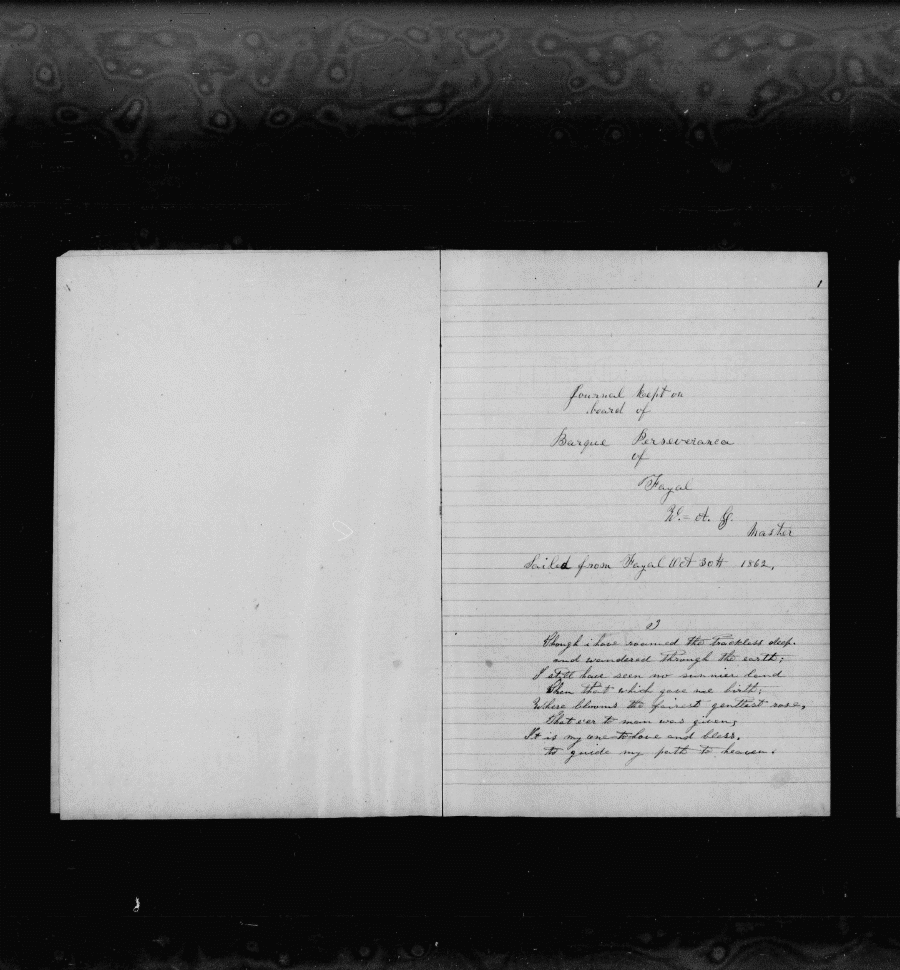 1
Journal Kept on
board of
Barque Perseveranca
of
Fayal
Master
Sailed from Fayal Oct 30th 1862,
Though i have roamed the trackless deep.
and wandered through the earth;
I still have seen no sunnier land
Than that which gave me birth;
Where blooms the fairest gentlest rose,
That ever to man was given;
It is my one to love and bless,
to guide my path to heaven.